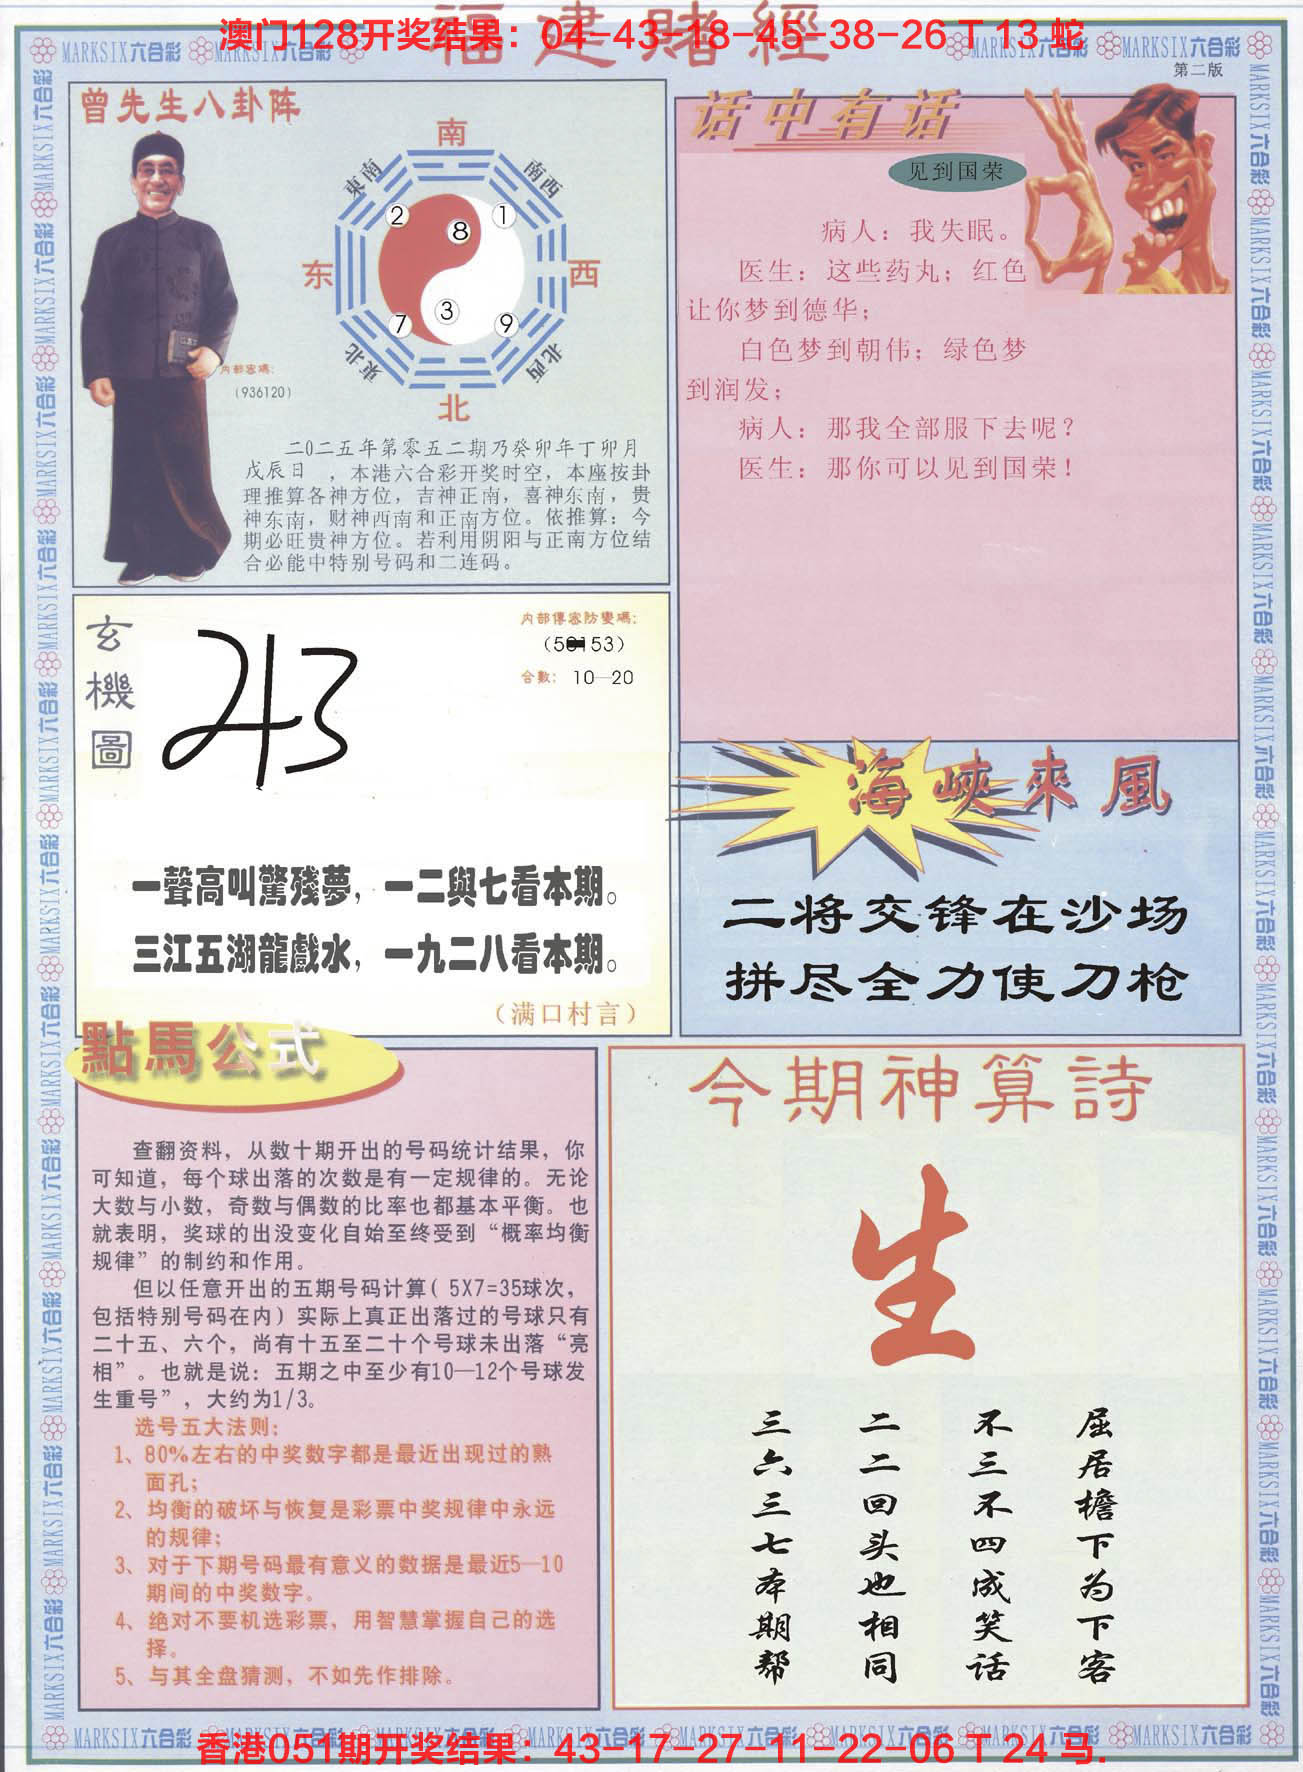 澳门128开奖结果：04-43-18-45-38-26 T 13 蛇
福建賭經
MARKSIX六合彩
第二版
曾先生八卦阵
南
東南
南西
2
1
8
东
西
3
7
9
東北
北西
北
内部密碼：
（936120）
二0二五年第零五二期乃癸卯年丁卯月
戊辰日　，本港六合彩开奖时空，本座按卦
理推算各神方位，吉神正南，喜神东南，贵
神东南，财神西南和正南方位。依推算：今
期必旺贵神方位。若利用阴阳与正南方位结
合必能中特别号码和二连码。
话中有话
见到国荣
病人：我失眠。
医生：这些药丸；红色
让你梦到德华；
白色梦到朝伟；绿色梦
到润发；
病人：那我全部服下去呢？
医生：那你可以见到国荣！
玄機圖
内部傳密防變碼：
合數：10—20
一聲高叫驚殘夢，一二與七看本期。
三江五湖龍戲水，一九二八看本期。
（满口村言）
海峽來風
二将交锋在沙场
拼尽全力使刀枪
點馬公式
查翻资料，从数十期开出的号码统计结果，你
可知道，每个球出落的次数是有一定规律的。无论
大数与小数，奇数与偶数的比率也都基本平衡。也
就表明，奖球的出没变化自始至终受到“概率均衡
规律”的制约和作用。
但以任意开出的五期号码计算（5X7=35球次，
包括特别号码在内）实际上真正出落过的号球只有
二十五、六个，尚有十五至二十个号球未出落“亮
相”。也就是说：五期之中至少有10—12个号球发
生重号”，大约为1/3。
选号五大法则：
1、80%左右的中奖数字都是最近出现过的熟
面孔；
2、均衡的破坏与恢复是彩票中奖规律中永远
的规律；
3、对于下期号码最有意义的数据是最近5—10
期间的中奖数字。
4、绝对不要机选彩票，用智慧掌握自己的选
择。
5、与其全盘猜测，不如先作排除。
今期神算詩
生
屈居檐下为下客
不三不四成笑话
二二回头也相同
三六三七本期帮
香港051期开奖结果：43-17-27-11-22-06 T 24 马.